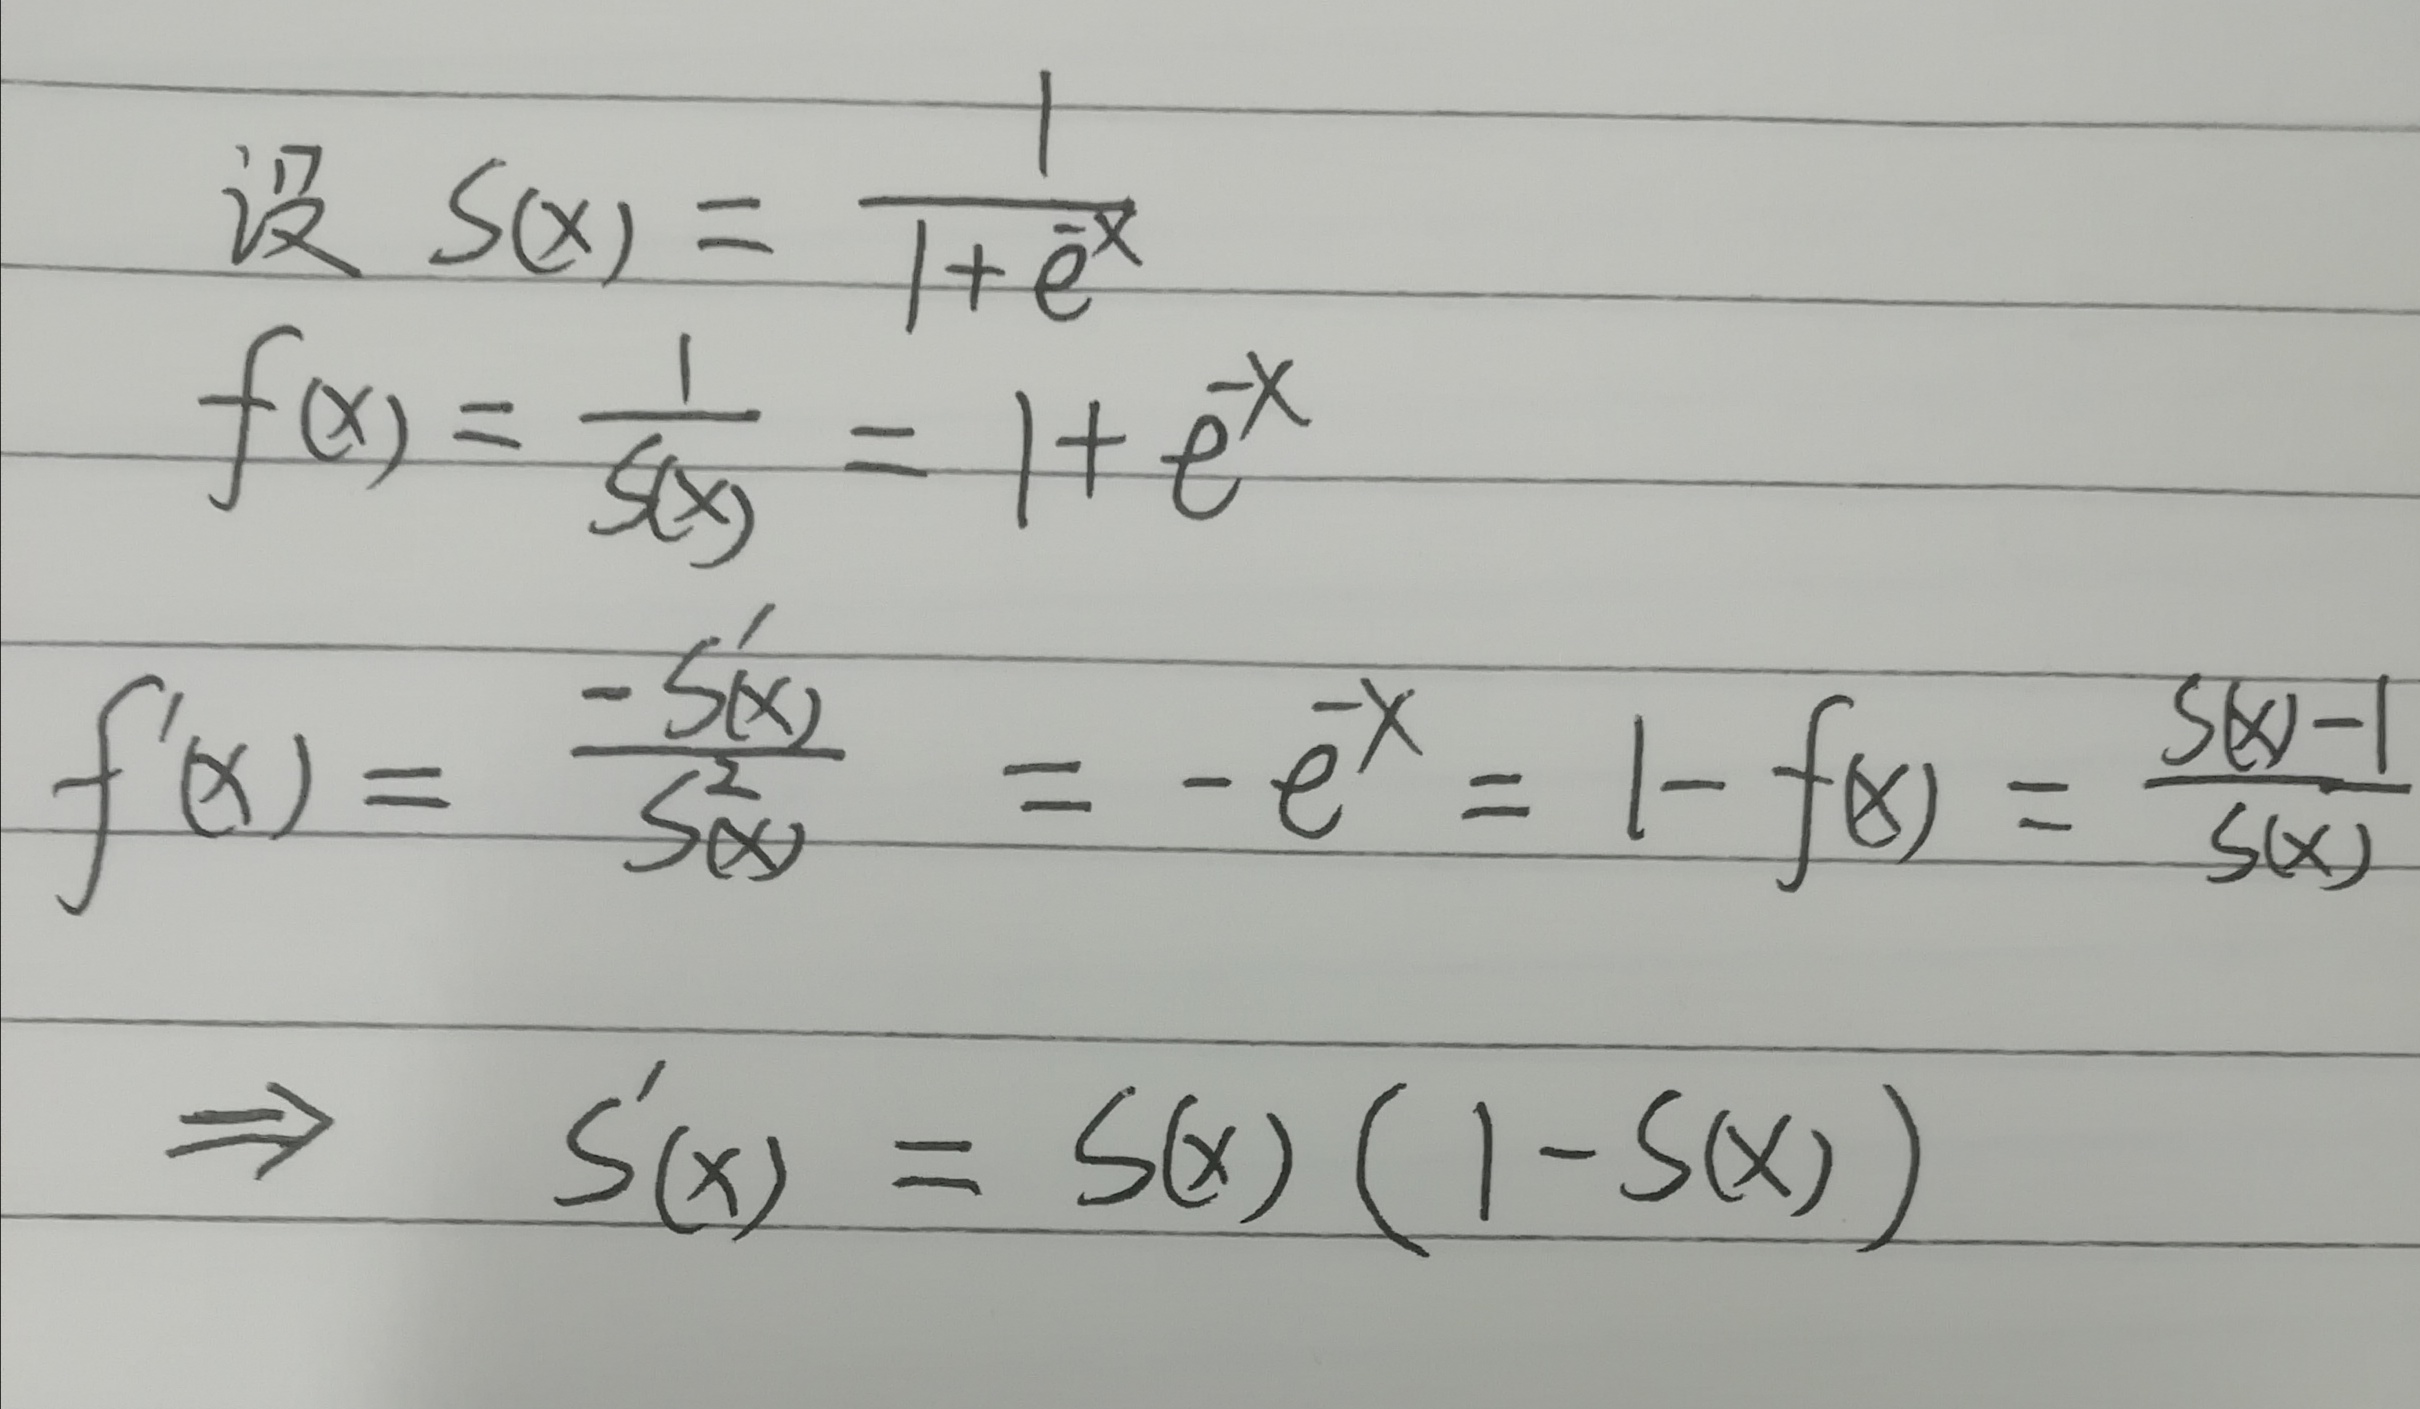 设 S(x) = \frac{1}{1+e^{-x}}
f(x) = \frac{1}{S(x)} = 1+e^{-x}
f'(x) = \frac{-S'(x)}{S^2(x)} = -e^{-x} = 1-f(x) = \frac{S(x)-1}{S(x)}
⇒ S'(x) = S(x)(1-S(x))